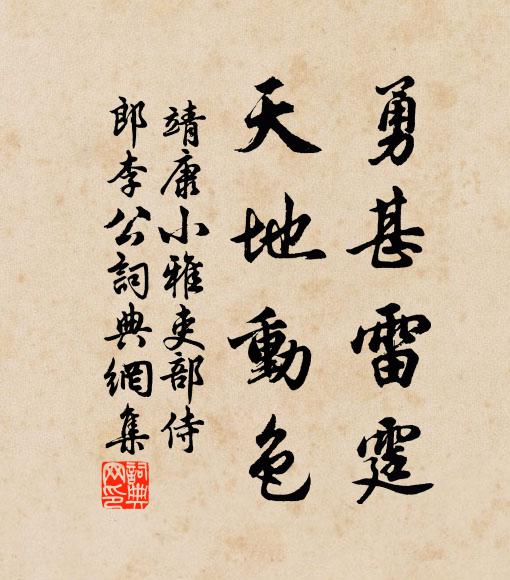 勇甚雷霆
天地動色
靖康小雅吏部侍
郎李公詞典網集
詞典
网印